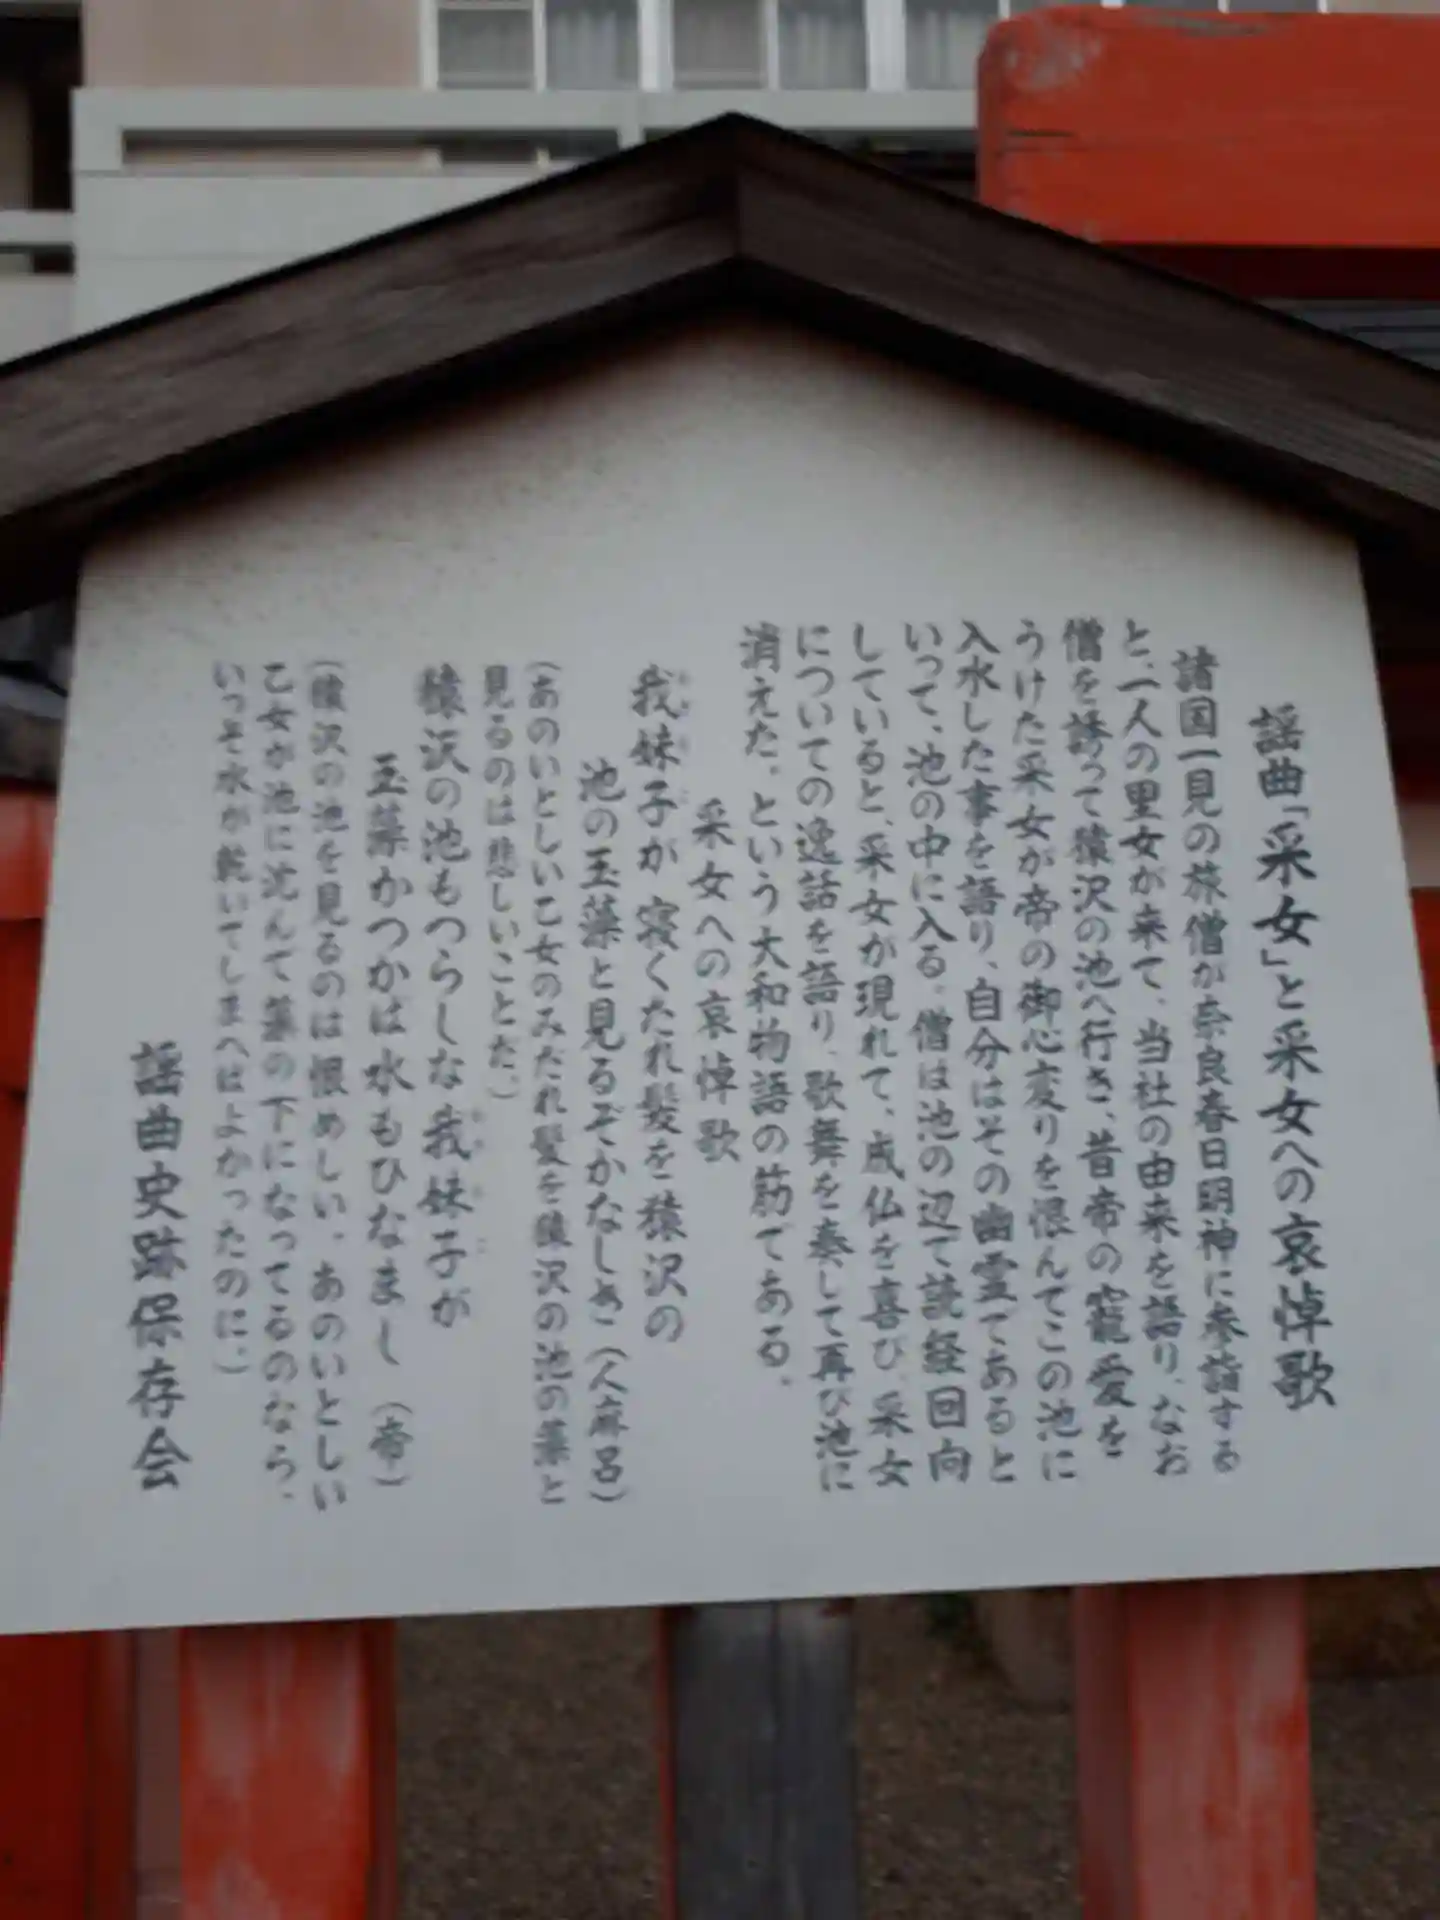 謡曲「采女」と采女への哀悼歌
諸国一見の旅僧が奈良春日明神に参詣する
と、一人の里女が来て、当社の由来を語り、なお
僧を誘って猿沢の池へ行き、昔帝の寵愛を
うけた采女が帝の御心変りを恨んでこの池に
入水した事を語り、自分はその幽霊であると
いって、池の中に入る。僧は池の辺で読経回向
していると、采女が現れて、成仏を喜び、采女
についての逸話を語り、歌舞を奏して再び池に
消えた。という大和物語の筋である。
采女への哀悼歌
我妹子が 寝くたれ髪を猿沢の
池の玉藻と見るぞかなしき（人麻呂）
（あのいとしい乙女のみだれ髪を猿沢の池の藻と
見るのは悲しいことだ。）
猿沢の池もつらしな我妹子が
玉藻かつかば水もひなまし（帝）
（猿沢の池を見るのは恨めしい。あのいとしい
乙女が池に沈んで藻の下になってるのなら、
いっそ水が乾いてしまへばよかったのに。）
謡曲史跡保存会